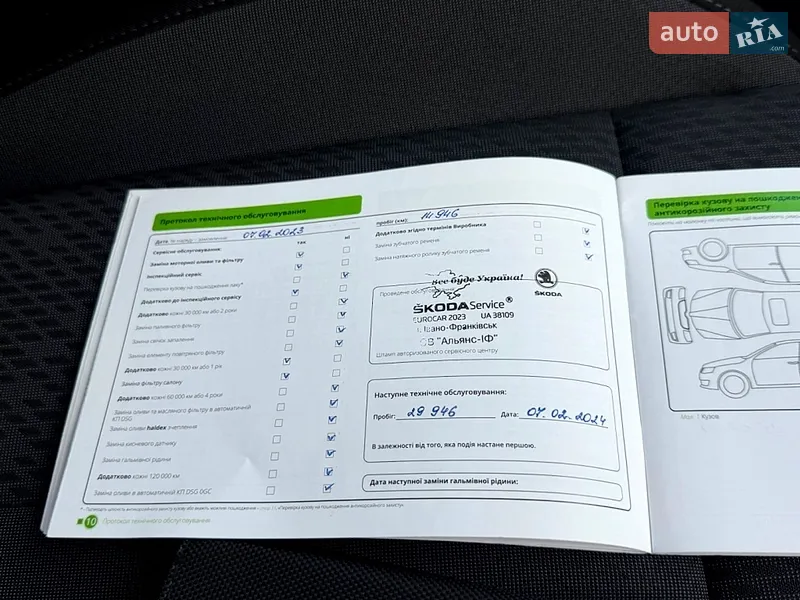 auto RIA .com
Протокол технічного обслуговування
Дата 07.02.2023
так ні
Сервісне обслуговування:
Заміна моторної оливи та фільтру
Інспекційний сервіс
Перевірка кузову на пошкодження лаку*
Додатково до інспекційного сервісу
Додатково кожні 30 000 км або 2 роки
Заміна паливного фільтру
Заміна свічок запалення
Заміна елементу повітряного фільтру
Додатково кожні 30 000 км або 1 рік
Заміна фільтру салону
Додатково кожні 60 000 км або 4 роки
Заміна оливи та масляного фільтру в автоматичній КП DSG
Заміна оливи haldex зчеплення
Заміна кисневого датчику
Заміна гальмівної рідини
Додатково кожні 120 000 км
Заміна оливи в автоматичній КП DSG DGC
10 Протокол технічного обслуговування
пробіг (км): 14 946
Додатково згідно термінів Виробника
Заміна зубчатого ременя
Заміна натяжного ролику зубчатого ременя
Проведене
Все буде Україна!
ŠKODA
ŠKODA Service®
EUROCAR 2023 UA 38109
м. Івано-Франківськ
"Альянс-ІФ"
Штамп авторизованого сервісного центру
Наступне технічне обслуговування:
Пробіг: 29 946 Дата: 07.02.2024
В залежності від того, яка подія настане першою.
Дата наступної заміни гальмівної рідини:
Перевірка кузову на
антикорозійного захисту
Мал. 1 Кузов